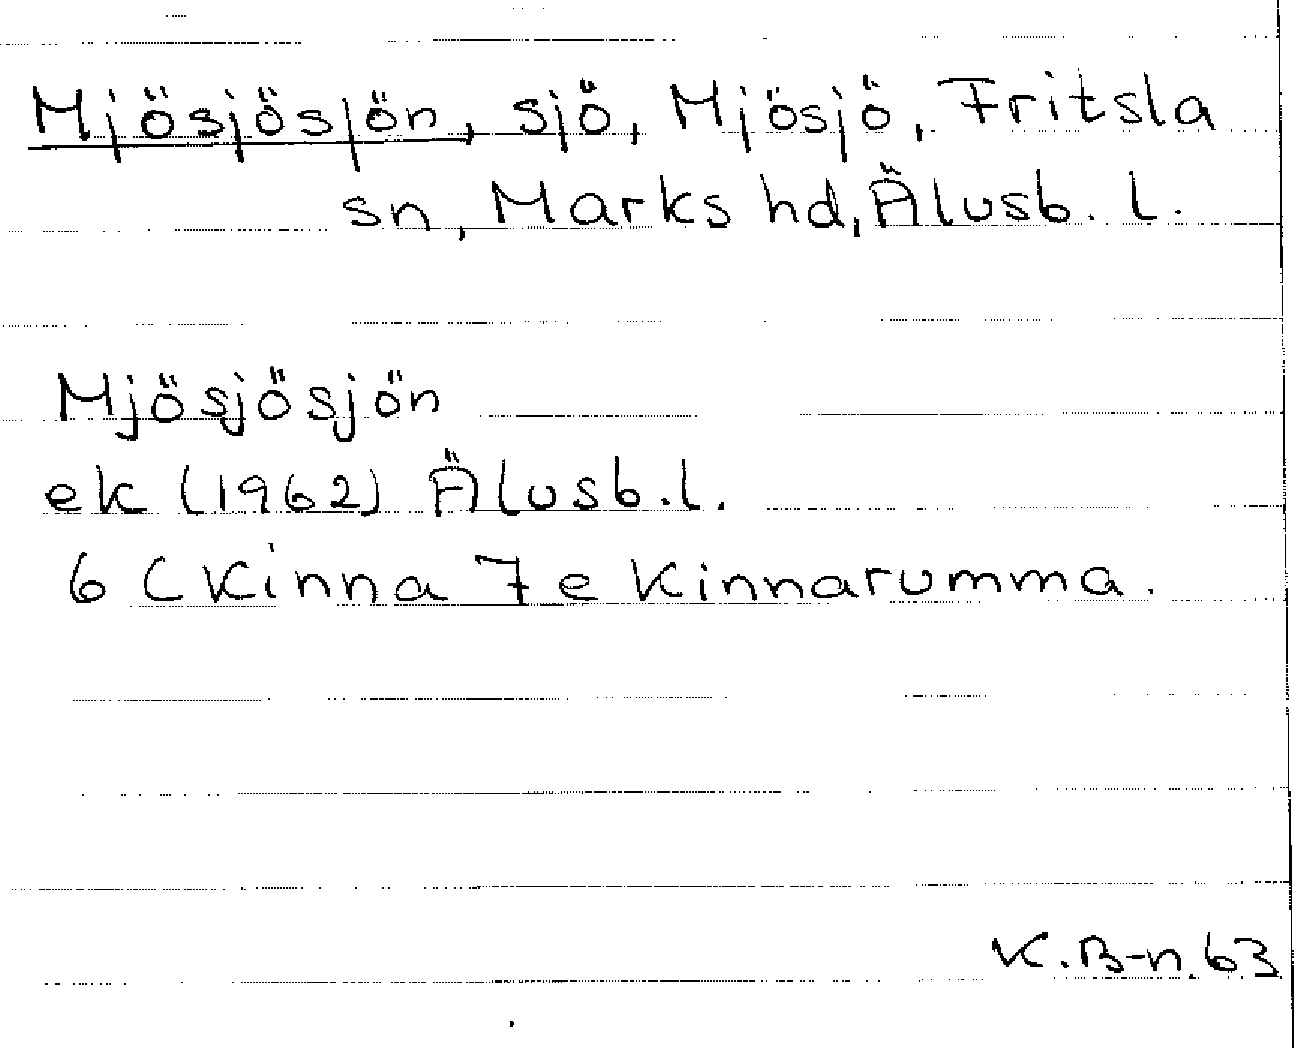 Mjösjösjön, sjö, Mjösjö, Fritsla
sn, Marks hd, Älvsb. l.
Mjösjösjön
ek (1962) Älvsb. l.
6 C Kinna 7 e Kinnarumma.
K. B-n. 63